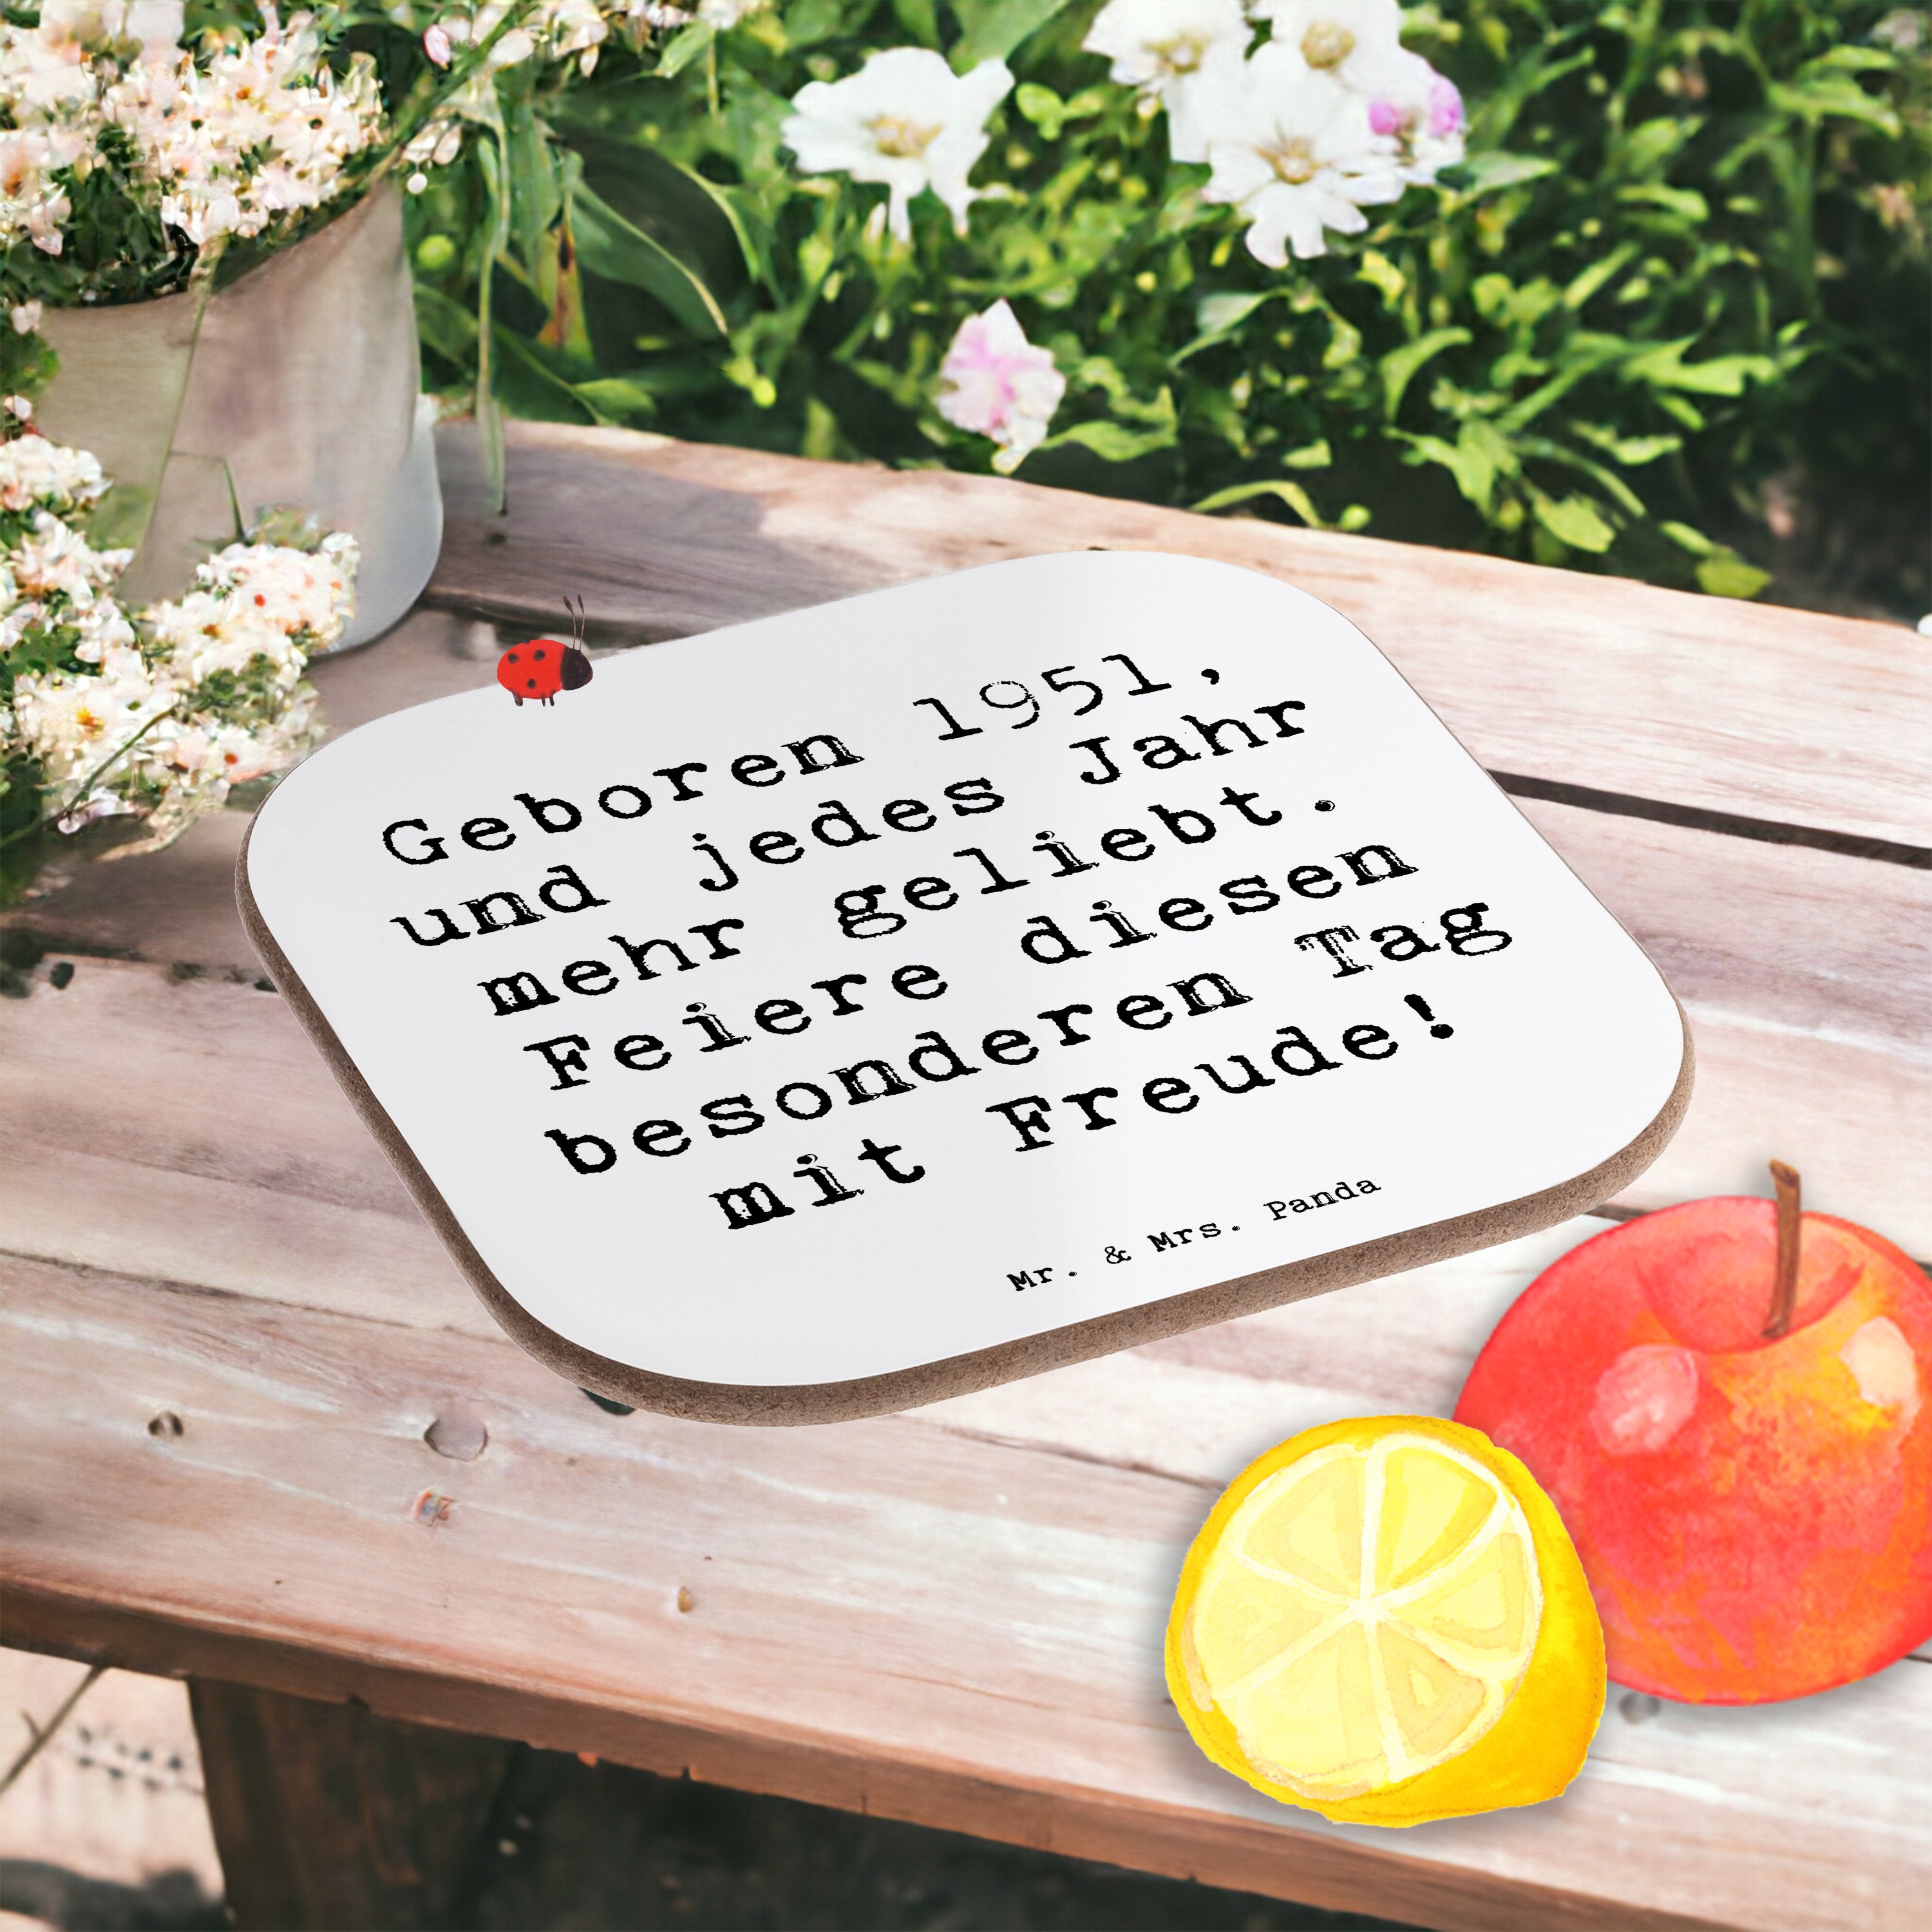 Geboren 1951,
und jedes Jahr
mehr geliebt.
Feiere diesen
besonderen Tag
mit Freude!
Mr. & Mrs. Panda